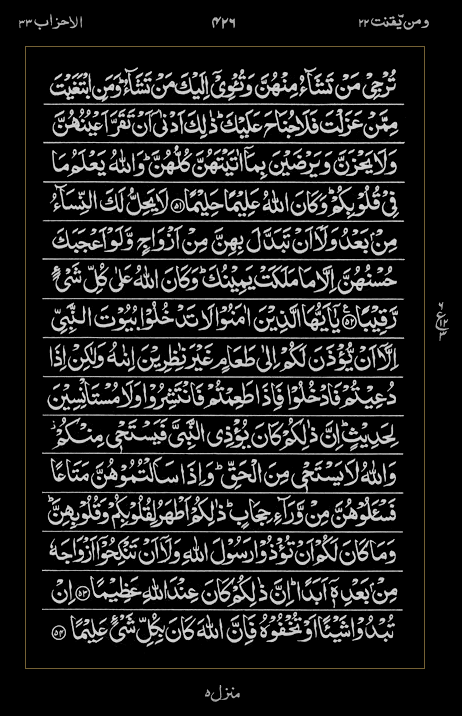 ومن یّقنت ۲۲ ۴۲۶ الاحزاب ۳۳
تُرْجِیْ مَنْ تَشَآءُ مِنْهُنَّ وَ تُـْٔوِیْۤ اِلَیْكَ مَنْ تَشَآءُ ؕ وَ مَنِ ابْتَغَیْتَ
مِمَّنْ عَزَلْتَ فَلَا جُنَاحَ عَلَیْكَ ؕ ذٰلِكَ اَدْنٰۤی اَنْ تَقَرَّ اَعْیُنُهُنَّ
وَ لَا یَحْزَنَّ وَ یَرْضَیْنَ بِمَاۤ اٰتَیْتَهُنَّ كُلُّهُنَّ ؕ وَ اللّٰهُ یَعْلَمُ مَا
فِیْ قُلُوْبِكُمْ ؕ وَ كَانَ اللّٰهُ عَلِیْمًا حَلِیْمًا ﴿۵۱﴾ لَا یَحِلُّ لَكَ النِّسَآءُ
مِنْۢ بَعْدُ وَ لَاۤ اَنْ تَبَدَّلَ بِهِنَّ مِنْ اَزْوَاجٍ وَّ لَوْ اَعْجَبَكَ
حُسْنُهُنَّ اِلَّا مَا مَلَكَتْ یَمِیْنُكَ ؕ وَ كَانَ اللّٰهُ عَلٰی كُلِّ شَیْءٍ
رَّقِیْبًا ﴿۵۲﴾ ع یٰۤاَیُّهَا الَّذِیْنَ اٰمَنُوْا لَا تَدْخُلُوْا بُیُوْتَ النَّبِیِّ
۶ ع ۱۲ ۳
اِلَّاۤ اَنْ یُّؤْذَنَ لَكُمْ اِلٰی طَعَامٍ غَیْرَ نٰظِرِیْنَ اِنٰىهُ وَ لٰكِنْ اِذَا
دُعِیْتُمْ فَادْخُلُوْا فَاِذَا طَعِمْتُمْ فَانْتَشِرُوْا وَ لَا مُسْتَاْنِسِیْنَ
لِحَدِیْثٍ ؕ اِنَّ ذٰلِكُمْ كَانَ یُؤْذِی النَّبِیَّ فَیَسْتَحْیٖ مِنْكُمْ ؗ
وَ اللّٰهُ لَا یَسْتَحْیٖ مِنَ الْحَقِّ ؕ وَ اِذَا سَاَلْتُمُوْهُنَّ مَتَاعًا
فَسْـَٔلُوْهُنَّ مِنْ وَّرَآءِ حِجَابٍ ؕ ذٰلِكُمْ اَطْهَرُ لِقُلُوْبِكُمْ وَ قُلُوْبِهِنَّ ؕ
وَ مَا كَانَ لَكُمْ اَنْ تُؤْذُوْا رَسُوْلَ اللّٰهِ وَ لَاۤ اَنْ تَنْكِحُوْۤا اَزْوَاجَهٗ
مِنْۢ بَعْدِهٖۤ اَبَدًا ؕ اِنَّ ذٰلِكُمْ كَانَ عِنْدَ اللّٰهِ عَظِیْمًا ﴿۵۳﴾ اِنْ
تُبْدُوْا شَیْـًٔا اَوْ تُخْفُوْهُ فَاِنَّ اللّٰهَ كَانَ بِكُلِّ شَیْءٍ عَلِیْمًا ﴿۵۴﴾
منزل ۵